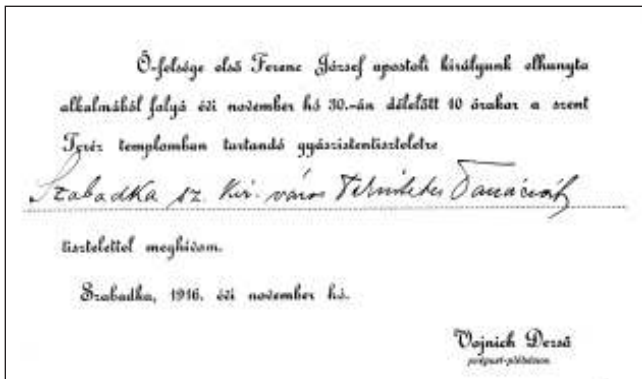 Ő-felsége első Ferenc József apostoli királyunk elhunyta
alkalmából folyó évi november hó 30.-án délelőtt 10 órakor a szent
Teréz templomban tartandó gyászistentiszteletre
Szabadka sz. kir. város Tekintetes Tanácsát
tisztelettel meghívom.
Szabadka, 1916. évi november hó.
Vojnich Dezső
prépost-plébános.